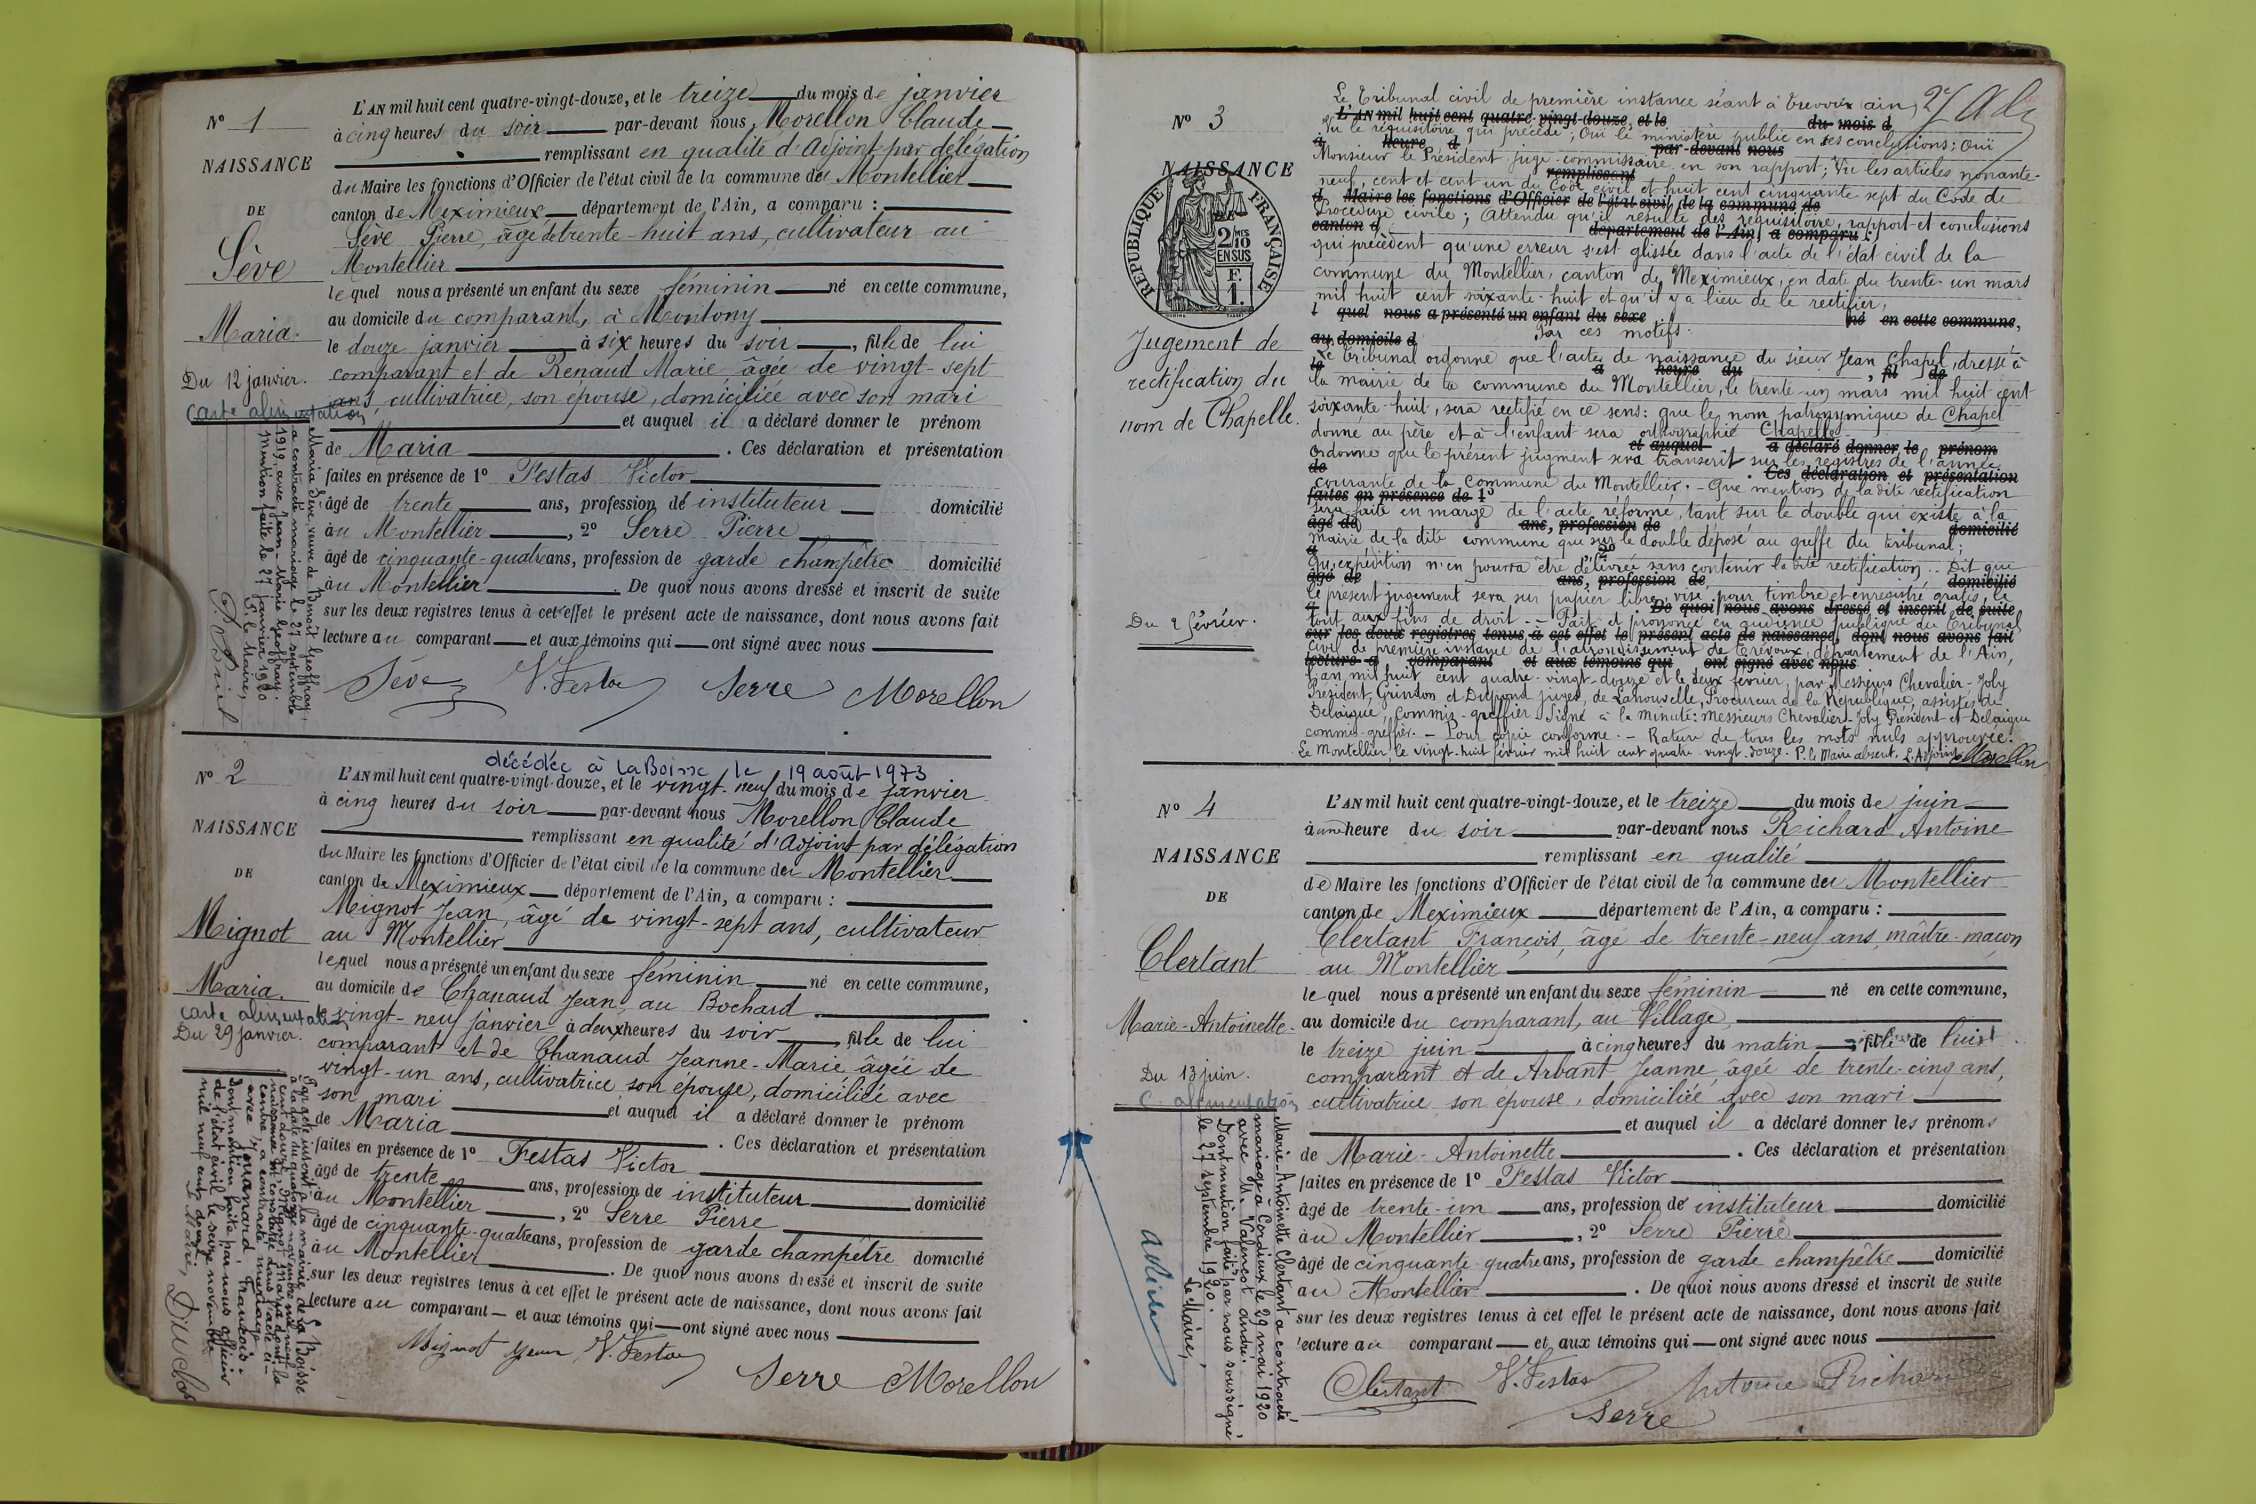 N° 1
NAISSANCE
DE
Sève
Maria.
Du 12 janvier.
carte alimentation
L'AN mil huit cent quatre-vingt-douze, et le treize du mois de janvier
à cinq heures du soir par-devant nous Morellon Claude
remplissant en qualité d'Adjoint par délégation
du Maire les fonctions d'Officier de l'état civil de la commune du Montellier
canton de Meximieux département de l'Ain, a comparu :
Sève Pierre, âgé de trente-huit ans, cultivateur au
Montellier
lequel nous a présenté un enfant du sexe féminin né en cette commune,
au domicile du comparant, à Montony
le douze janvier à six heures du soir, fille de lui
comparant et de Renaud Marie âgée de vingt-sept
ans, cultivatrice, son épouse, domiciliée avec son mari
et auquel il a déclaré donner le prénom
de Maria. Ces déclaration et présentation
faites en présence de 1° Festas Victor
âgé de trente ans, profession de instituteur domicilié
au Montellier, 2° Serre Pierre
âgé de cinquante-quatre ans, profession de garde champêtre domicilié
au Montellier. De quoi nous avons dressé et inscrit de suite
sur les deux registres tenus à cet effet le présent acte de naissance, dont nous avons fait
lecture au comparant et aux témoins qui ont signé avec nous
Sève V. Festas Serre Morellon
Maria Sève veuve de Benoit Geoffray,
a contracté mariage le 27 septembre
1919, avec Jean-Marie Geoffray.
Mention faite le 27 janvier 1920
Le Maire,
N° 2
NAISSANCE
DE
Mignot
Maria.
carte alimentation
Du 29 janvier.
décédée à La Boisse le 19 août 1973
L'AN mil huit cent quatre-vingt-douze, et le vingt-neuf du mois de janvier
à cinq heures du soir par-devant nous Morellon Claude
remplissant en qualité d'Adjoint par délégation
du Maire les fonctions d'Officier de l'état civil de la commune du Montellier
canton de Meximieux département de l'Ain, a comparu :
Mignot Jean, âgé de vingt-sept ans, cultivateur
au Montellier
lequel nous a présenté un enfant du sexe féminin né en cette commune,
au domicile de Chanaud Jean, au Bochard
le vingt-neuf janvier à deux heures du soir, fille de lui
comparant et de Chanaud Jeanne-Marie âgée de
vingt-un ans, cultivatrice, son épouse, domiciliée avec
son mari et auquel il a déclaré donner le prénom
de Maria. Ces déclaration et présentation
faites en présence de 1° Festas Victor
âgé de trente ans, profession de instituteur domicilié
au Montellier, 2° Serre Pierre
âgé de cinquante-quatre ans, profession de garde champêtre domicilié
au Montellier. De quoi nous avons dressé et inscrit de suite
sur les deux registres tenus à cet effet le présent acte de naissance, dont nous avons fait
lecture au comparant et aux témoins qui ont signé avec nous
Mignot Jean V. Festas
Serre Morellon
Par acte inscrit à la mairie de La Boisse
à la date du quatorze novembre mil neuf
cent douze, Mignot Maria dont la
naissance est constatée dans l'acte ci-
contre, a contracté mariage
avec Jouanard François.
Dont mention faite par nous officier
de l'état civil le seize novembre
mil neuf cent douze
Le Maire,
N° 3
NAISSANCE
DE
RÉPUBLIQUE FRANÇAISE
2 MES
10
EN SUS
F.
1.
Jugement de
rectification du
nom de Chapelle.
Du 2 février.
Le Tribunal civil de première instance séant à Trévoux (ain)
L'AN mil huit cent quatre-vingt-douze, et le du mois d
Vu le réquisitoire qui précède ; Ouï le ministère public en ses conclusions ; Ouï
à heure d par-devant nous
Monsieur le Président juge-commissaire en son rapport ; Vu les articles nonante-
remplissant
neuf, cent et cent un du Code civil et huit cent cinquante sept du Code de
d Maire les fonctions d'Officier de l'état civil de la commune de
Procédure civile ; Attendu qu'il résulte des réquisitoire, rapport et conclusions
canton d département de l'Ain, a comparu :
qui précèdent qu'une erreur s'est glissée dans l'acte de l'état civil de la
commune du Montellier, canton de Meximieux, en date du trente-un mars
mil huit cent soixante-huit et qu'il y a lieu de le rectifier,
l quel nous a présenté un enfant du sexe né en cette commune,
Par ces motifs.
au domicile d
Le Tribunal ordonne que l'acte de naissance du sieur Jean Chapel, dressé à
le à heure du, fil de
la mairie de la commune du Montellier, le trente-un mars mil huit cent
soixante-huit, sera rectifié en ce sens : que le nom patronymique de Chapel
donné au père et à l'enfant sera orthographié Chapelle
et auquel a déclaré donner le prénom
Ordonne que le présent jugement sera transcrit sur les registres de l'année
de. Ces déclaration et présentation
courante de la commune du Montellier. - Que mention de la dite rectification
faites en présence de 1°
sera faite en marge de l'acte réformé, tant sur le double qui existe à la
âgé de ans, profession de domicilié
mairie de la dite commune que sur le double déposé au greffe du tribunal ;
à 2°
Qu'expédition n'en pourra être délivrée sans contenir la dite rectification. - Dit que
âgé de ans, profession de domicilié
le présent jugement sera sur papier libre, visé pour timbre et enregistré gratis, le
à. De quoi nous avons dressé et inscrit de suite
tout aux fins de droit. - Fait et prononcé en audience publique du Tribunal
sur les deux registres tenus à cet effet le présent acte de naissance, dont nous avons fait
civil de première instance de l'arrondissement de Trévoux, département de l'Ain,
lecture a comparant et aux témoins qui ont signé avec nous
l'an mil huit cent quatre-vingt-douze et le deux février, par Messieurs Chevalier-Joly
Président, Grindon et Dupond juges, de Lanouvelle, Procureur de la République, assistés de
Delaigue, commis-greffier. Signé à la minute : Messieurs Chevalier-Joly Président et Delaigue
commis-greffier. - Pour copie conforme. - Rature de tous les mots nuls approuvée.
Le Montellier, le vingt-huit février mil huit cent quatre-vingt-douze. P. le Maire absent. L'Adjoint Morellon
N° 4
NAISSANCE
DE
Clertant
Marie-Antoinette.
Du 13 juin.
C. alimentation
L'AN mil huit cent quatre-vingt-douze, et le treize du mois de juin
à une heure du soir par-devant nous Richard Antoine
remplissant en qualité
de Maire les fonctions d'Officier de l'état civil de la commune du Montellier
canton de Meximieux département de l'Ain, a comparu :
Clertant François, âgé de trente-neuf ans, maître-maçon
au Montellier
lequel nous a présenté un enfant du sexe féminin né en cette commune,
au domicile du comparant, au Village
le treize juin à cinq heures du matin, fille de lui
comparant et de Arbant Jeanne, âgée de trente-cinq ans,
cultivatrice, son épouse, domiciliée avec son mari
et auquel il a déclaré donner les prénoms
de Marie-Antoinette. Ces déclaration et présentation
faites en présence de 1° Festas Victor
âgé de trente-un ans, profession de instituteur domicilié
au Montellier, 2° Serre Pierre
âgé de cinquante-quatre ans, profession de garde champêtre domicilié
au Montellier. De quoi nous avons dressé et inscrit de suite
sur les deux registres tenus à cet effet le présent acte de naissance, dont nous avons fait
lecture au comparant et aux témoins qui ont signé avec nous
Clertant V. Festas Antoine Richard
Serre
Marie-Antoinette Clertant a contracté
mariage à Cordieux le 29 mai 1920
avec M. Valensot andré.
Dont mention faite par nous soussigné,
le 27 septembre 1920.
Le Maire,